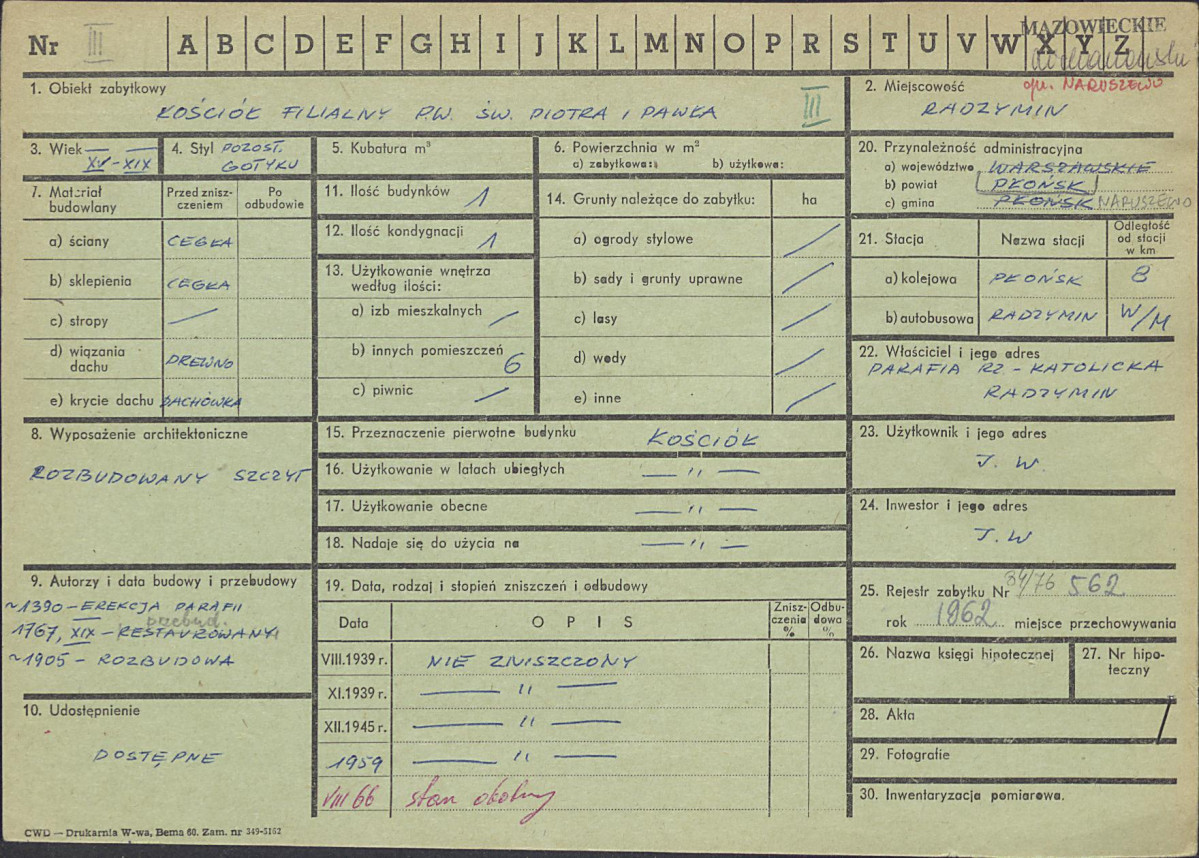 Nr III A B C D E F G H I J K L M N O P R S T U V W X Y Z
MAZOWIECKIE
gm. NARUSZEWO
1. Obiekt zabytkowy
KOŚCIÓŁ FILIALNY P.W. ŚW. PIOTRA I PAWŁA
III
2. Miejscowość
RADZYMIN
3. Wiek
XV-XIX
4. Styl POZOST.
GOTYKU
5. Kubatura m³
6. Powierzchnia w m²
a) zabytkowa: b) użytkowa:
20. Przynależność administracyjna
a) województwo WARSZAWSKIE
b) powiat PŁOŃSK
c) gmina PŁOŃSK NARUSZEWO
7. Materiał
budowlany
Przed znisz-
czeniem
Po
odbudowie
a) ściany CEGŁA
b) sklepienia CEGŁA
c) stropy
d) wiązania
dachu DREWNO
e) krycie dachu DACHÓWKA
11. Ilość budynków 1
12. Ilość kondygnacji 1
13. Użytkowanie wnętrza
według ilości:
a) izb mieszkalnych
b) innych pomieszczeń 6
c) piwnic
14. Grunty należące do zabytku: ha
a) ogrody stylowe
b) sady i grunty uprawne
c) lasy
d) wody
e) inne
21. Stacja
Nazwa stacji
Odległość
od stacji
w km
a) kolejowa PŁOŃSK 8
b) autobusowa RADZYMIN W/M
22. Właściciel i jego adres
PARAFIA RZ-KATOLICKA
RADZYMIN
8. Wyposażenie architektoniczne
ROZBUDOWANY SZCZYT
15. Przeznaczenie pierwotne budynku KOŚCIÓŁ
16. Użytkowanie w latach ubiegłych — " —
17. Użytkowanie obecne — " —
18. Nadaje się do użycia na — " —
23. Użytkownik i jego adres
J. W.
24. Inwestor i jego adres
J. W
9. Autorzy i data budowy i przebudowy
~1390-EREKCJA PARAFII
przebud.
1767, XIX-RESTAUROWANY
~1905 - ROZBUDOWA
10. Udostępnienie
DOSTĘPNE
19. Data, rodzaj i stopień zniszczeń i odbudowy
Data
OPIS
Znisz-
czenia
%
Odbu-
dowa
%
VIII.1939 r. NIE ZNISZCZONY
XI.1939 r. — " —
XII.1945 r. — " —
1959 — " —
VIII 66 stan dobry
25. Rejestr zabytku Nr 84/76 562
rok 1962 miejsce przechowywania
26. Nazwa księgi hipotecznej
27. Nr hipo-
teczny
28. Akta
29. Fotografie
30. Inwentaryzacja pomiarowa.
CWD — Drukarnia W-wa, Bema 60. Zam. nr 349-5162